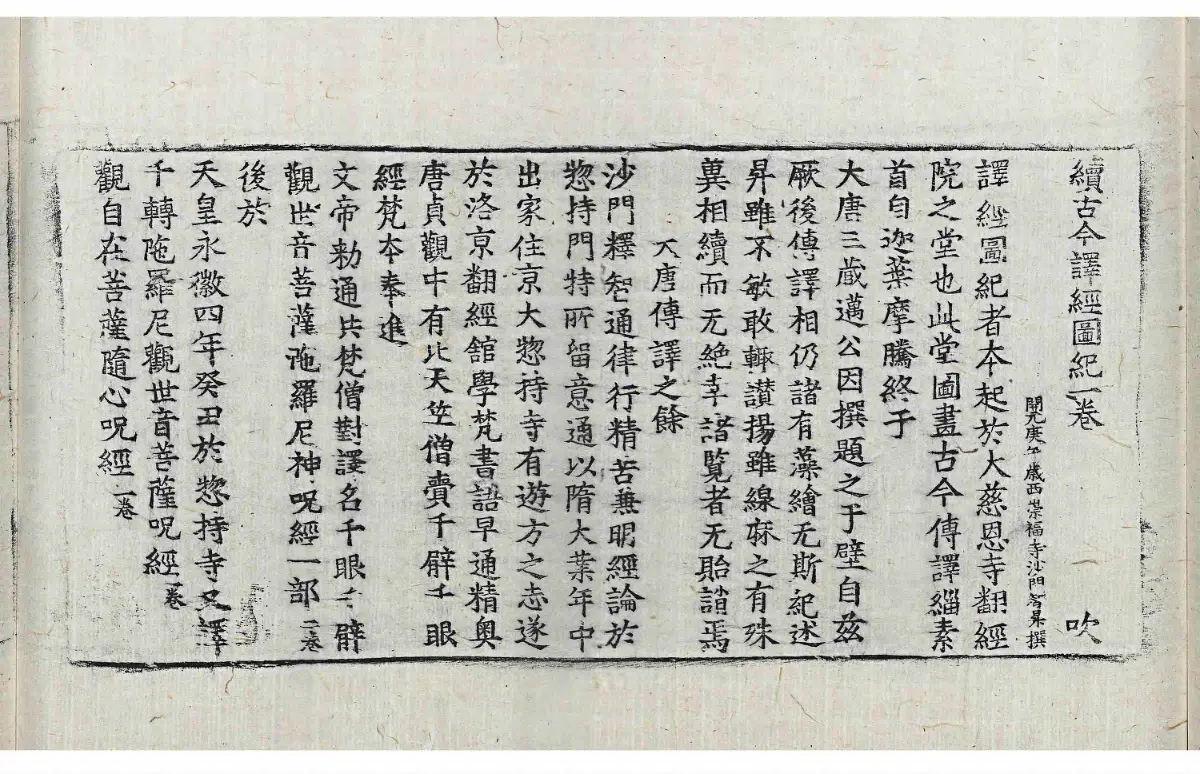 續古今譯經圖紀一卷 吹
開元庚午歳西崇福寺沙門智昇撰
譯經圖紀者本起於大慈恩寺翻經
院之堂也此堂圖畫古今傳譯緇素
首自迦葉摩騰終于
大唐三藏邁公因撰題之于壁自兹
厥後傳譯相仍諸有藻繪无斯紀述
昇雖不敏敢輙讃揚雖線麻之有殊
兾相續而无絶幸諸覧者无貽誚焉
大唐傳譯之餘
沙門釋智通律行精苦兼明經論於
惣持門特所留意通以隋大業年中
出家住京大惣持寺有遊方之志遂
於洛京翻經舘學梵書語早通精奧
唐貞觀中有北天竺僧賷千臂千眼
經梵本奉進
文帝勑通共梵僧對譯名千眼千臂
觀世音菩薩陁羅尼神呪經一部二卷
後於
天皇永徽四年癸丑於惣持寺又譯
千轉陁羅尼觀世音菩薩呪經一卷
觀自在菩薩隨心呪經一卷